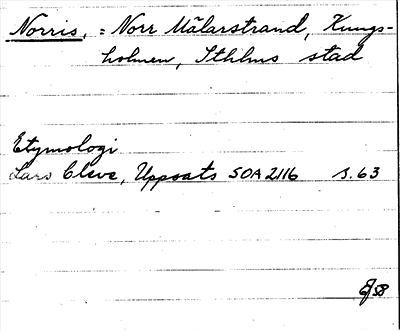 Norris, = Norr Mälarstrand, Kungs-
holmen, Sthlms stad
Etymologi
Lars Cleve, Uppsats SOA 2116 s. 63
58